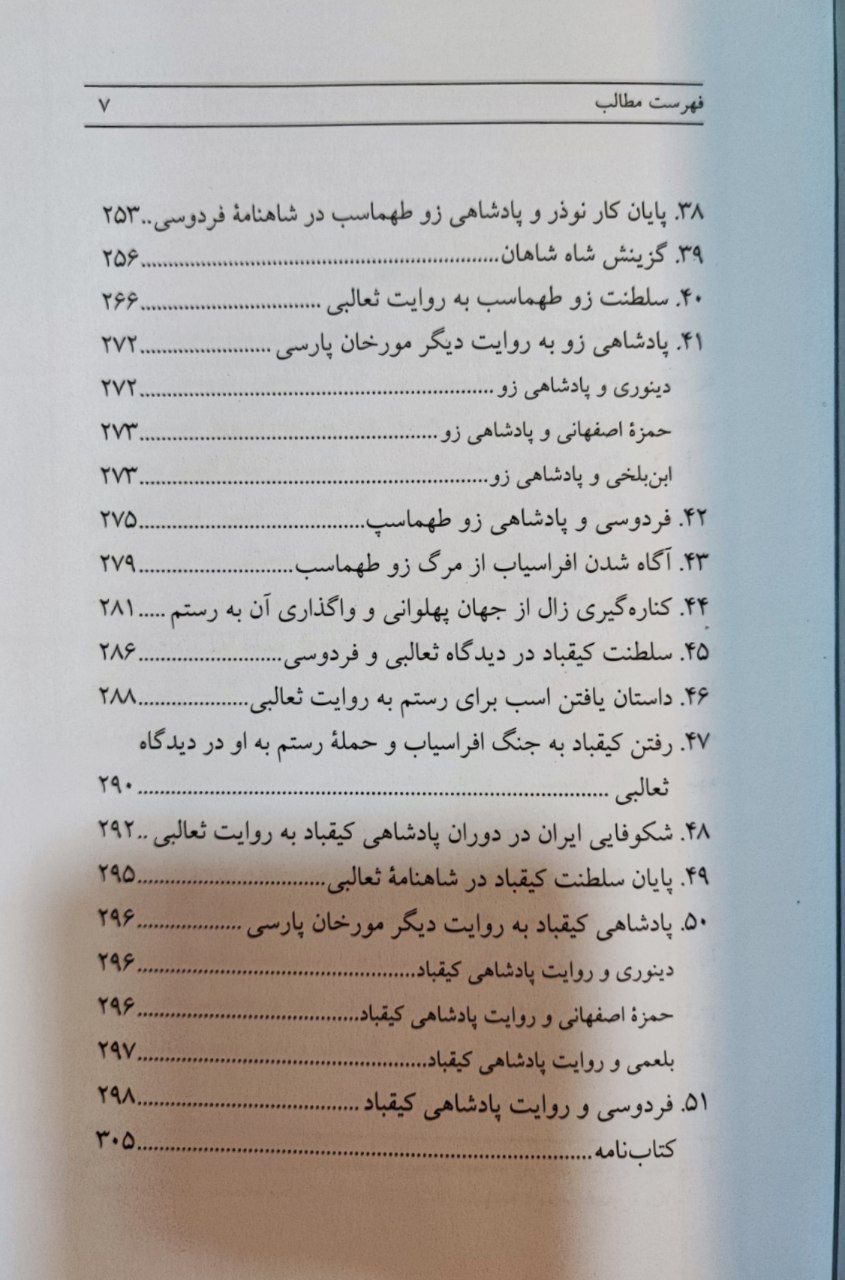 فهرست مطالب ۷
۳۸. پایان کار نوذر و پادشاهی زو طهماسب در شاهنامهٔ فردوسی.. ۲۵۳
۳۹. گزینش شاه شاهان ........ ۲۵۶
۴۰. سلطنت زو طهماسب به روایت ثعالبی ........ ۲۶۶
۴۱. پادشاهی زو به روایت دیگر مورخان پارسی ........ ۲۷۲
دینوری و پادشاهی زو ........ ۲۷۲
حمزهٔ اصفهانی و پادشاهی زو ........ ۲۷۳
ابن‌بلخی و پادشاهی زو ........ ۲۷۳
۴۲. فردوسی و پادشاهی زو طهماسپ ........ ۲۷۵
۴۳. آگاه شدن افراسیاب از مرگ زو طهماسب ........ ۲۷۹
۴۴. کناره‌گیری زال از جهان پهلوانی و واگذاری آن به رستم ..... ۲۸۱
۴۵. سلطنت کیقباد در دیدگاه ثعالبی و فردوسی ........ ۲۸۶
۴۶. داستان یافتن اسب برای رستم به روایت ثعالبی ........ ۲۸۸
۴۷. رفتن کیقباد به جنگ افراسیاب و حملهٔ رستم به او در دیدگاه
ثعالبی ........ ۲۹۰
۴۸. شکوفایی ایران در دوران پادشاهی کیقباد به روایت ثعالبی .. ۲۹۲
۴۹. پایان سلطنت کیقباد در شاهنامهٔ ثعالبی ........ ۲۹۵
۵۰. پادشاهی کیقباد به روایت دیگر مورخان پارسی ........ ۲۹۶
دینوری و روایت پادشاهی کیقباد ........ ۲۹۶
حمزهٔ اصفهانی و روایت پادشاهی کیقباد ........ ۲۹۶
بلعمی و روایت پادشاهی کیقباد ........ ۲۹۷
۵۱. فردوسی و روایت پادشاهی کیقباد ........ ۲۹۸
کتاب‌نامه ........ ۳۰۵